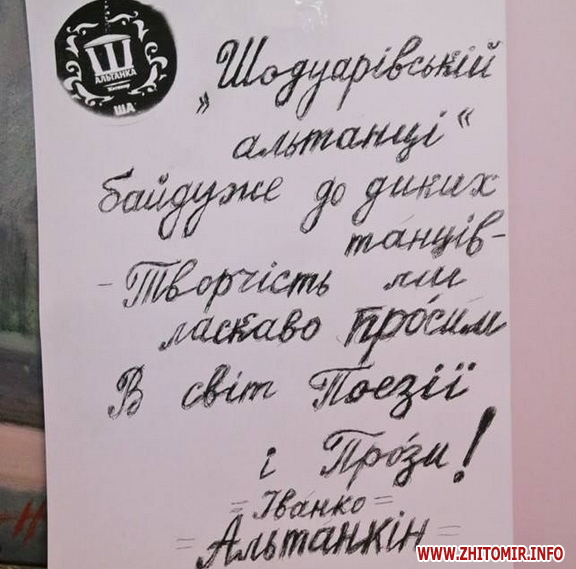 Ш
АЛЬТАНКА
Житомир
ША
„Шодуарівській
альтанці“
байдуже до диких
танців-
- Творчість ми
ласкаво про́сим
В світ Поезії
і Про́зи!
= Іванко =
= Альтанкін =
WWW.ZHITOMIR.INFO